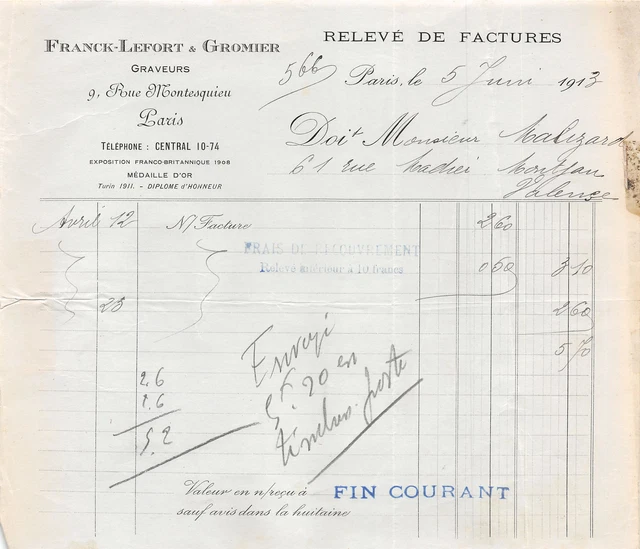 FRANCK-LEFORT & GROMIER
GRAVEURS
9, Rue Montesquieu
Paris
TÉLÉPHONE : CENTRAL 10-74
EXPOSITION FRANCO-BRITANNIQUE 1908
MÉDAILLE D'OR
Turin 1911. - DIPLOME d'HONNEUR
RELEVÉ DE FACTURES
566
Paris, le 5 Juin 1913
Doit Monsieur
61 rue
Valence
Avril 12 N/ Facture 2 60
FRAIS DE RECOUVREMENT
Relevé inférieur à 10 francs
0 50 3 10
23 2 60
5 70
2,6
2.6
5.2
Envoyé
5f. 20 en
timbres. poste
Valeur en n/reçu à FIN COURANT
sauf avis dans la huitaine